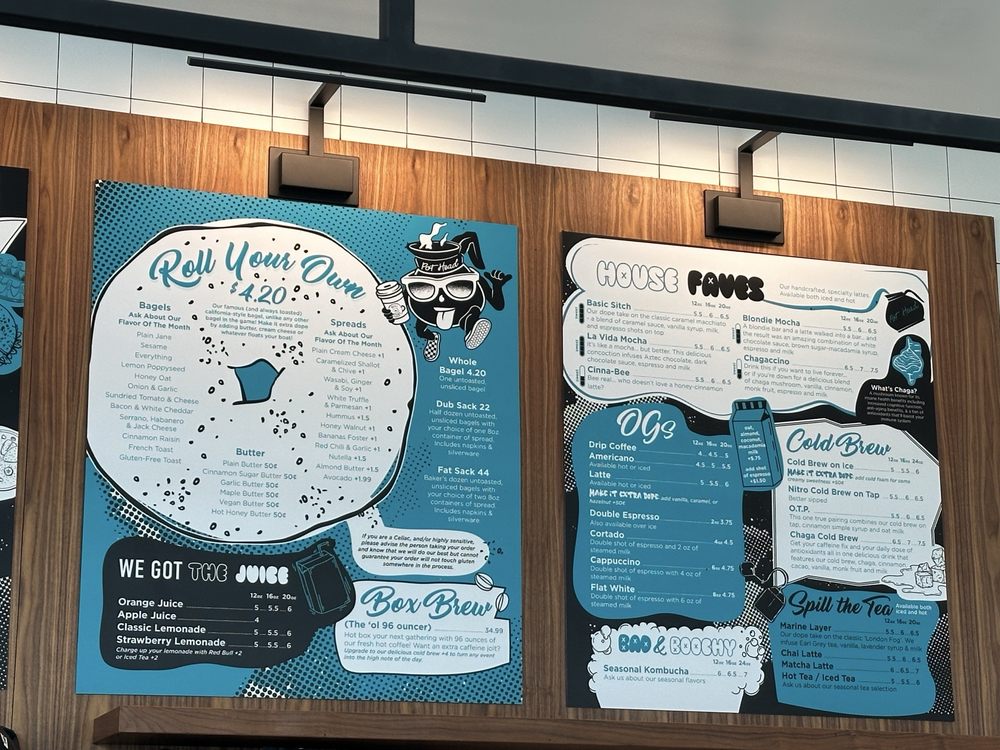 Roll Your Own
$4.20
Our famous (and always toasted)
california-style bagel, unlike any other
bagel in the game! Make it extra dope
by adding butter, cream cheese or
whatever floats your boat!
Bagels
Ask About Our
Flavor Of The Month
Plain Jane
Sesame
Everything
Lemon Poppyseed
Honey Oat
Onion & Garlic
Sundried Tomato & Cheese
Bacon & White Cheddar
Serrano, Habanero
& Jack Cheese
Cinnamon Raisin
French Toast
Gluten-Free Toast
Spreads
Ask About Our
Flavor Of The Month
Plain Cream Cheese +1
Caramelized Shallot
& Chive +1
Wasabi, Ginger
& Soy +1
White Truffle
& Parmesan +1
Hummus +1.5
Honey Walnut +1
Bananas Foster +1
Red Chili & Garlic +1
Nutella +1.5
Almond Butter +1.5
Avocado +1.99
Butter
Plain Butter 50¢
Cinnamon Sugar Butter 50¢
Garlic Butter 50¢
Maple Butter 50¢
Vegan Butter 50¢
Hot Honey Butter 50¢
Pot Head
Whole
Bagel 4.20
One untoasted,
unsliced bagel
Dub Sack 22
Half dozen untoasted,
unsliced bagels with
your choice of one 8oz
container of spread.
Includes napkins &
silverware
Fat Sack 44
Baker's dozen untoasted,
unsliced bagels with
your choice of two 8oz
containers of spread.
Includes napkins &
silverware
If you are a Celiac, and/or highly sensitive,
please advise the person taking your order
and know that we will do our best but cannot
guarantee your order will not touch gluten
somewhere in the process.
WE GOT THE JUICE
12oz 16oz 20oz
Orange Juice 5...5.5...6
Apple Juice 4
Classic Lemonade 5...5.5...6
Strawberry Lemonade 5...5.5...6
Charge up your lemonade with Red Bull +2
or Iced Tea +2
Box Brew
(The 'ol 96 ouncer) 34.99
Hot box your next gathering with 96 ounces of
our fresh hot coffee! Want an extra caffeine jolt?
Upgrade to our delicious cold brew +4 to turn any event
into the high note of the day.
HOUSE FAVES
Our handcrafted, specialty lattes.
Available both iced and hot
12oz 16oz 20oz
Basic Sitch 5.5...6...6.5
Our dope take on the classic caramel macchiato
- a blend of caramel sauce, vanilla syrup, milk,
and espresso shots on top.
La Vida Mocha 5.5...6...6.5
It's like a mocha... but better. This delicious
concoction infuses Aztec chocolate, dark
chocolate sauce, espresso and milk
Cinna-Bee 5.5...6...6.5
Bee real... who doesn't love a honey-cinnamon
latte?
12oz 16oz 20oz
Blondie Mocha 5.5...6...6.5
A blondie bar and a latte walked into a bar... and
the result was an amazing combination of white
chocolate sauce, brown sugar-macadamia syrup,
espresso and milk
Chagaccino 6.5...7...7.5
Drink this if you want to live forever...
or if you're down for a delicious blend
of chaga mushroom, vanilla, cinnamon,
monk fruit, espresso and milk
Pot Head
What's Chaga?
A mushroom known for its
insane health benefits including
increased cognitive function,
anti-aging benefits, & a ton of
antioxidants that'll boost your
immune system
OGs
12oz 16oz 20oz
Drip Coffee 4...4.5...5
Americano 4.5...5...5.5
Available hot or iced
Latte 5...5.5...6
Available hot or iced
MAKE IT EXTRA DOPE add vanilla, caramel, or
hazelnut +50¢
Double Espresso 2oz 3.75
Also available over ice
Cortado 4oz 4.5
Double shot of espresso and 2 oz of
steamed milk
Cappuccino 6oz 4.75
Double shot of espresso with 4 oz of
steamed milk
Flat White 8oz 4.75
Double shot of espresso with 6 oz of
steamed milk
oat,
almond,
coconut,
macadamia
milk
+$.75
add shot
of espresso
+$1.50
Cold Brew
12oz 16oz 24oz
Cold Brew on Ice 5...5.5...6
MAKE IT EXTRA DOPE add cold foam for some
creamy sweetness +50¢
Nitro Cold Brew on Tap 5.5...6...6.5
Better sipped
O.T.P. 5.5...6...6.5
This one true pairing combines our cold brew on
tap, cinnamon simple syrup and oat milk
Chaga Cold Brew 6...6.5...7
Get your caffeine fix and your daily dose of
antioxidants all in one delicious drink that
features our cold brew, chaga, cinnamon,
cacao, vanilla, monk fruit and milk
BAO & BOOCHY
12oz 16oz 24oz
Seasonal Kombucha 6...6.5...7
Ask us about our seasonal flavors
Spill the Tea
Available both
iced and hot
12oz 16oz 20oz
Marine Layer 5.5...6...6.5
Our dope take on the classic 'London Fog'. We
infuse Earl Grey tea, vanilla, lavender syrup & milk
Chai Latte 5.5...6...6.5
Matcha Latte 6...6.5...7
Hot Tea / Iced Tea 5...5.5...6
Ask us about our seasonal tea selection